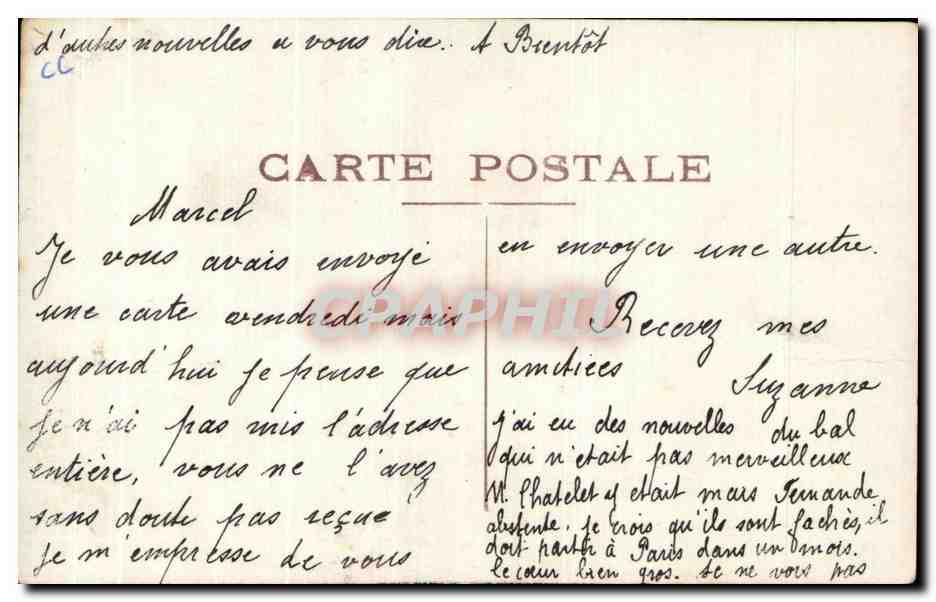 d'autres nouvelles a vous dire. A Bientôt
CL
CARTE POSTALE
Marcel
Je vous avais envoyé
une carte vendredi mais
aujourd'hui je pense que
je n'ai pas mis l'adresse
entière, vous ne l'avez
sans doute pas reçue
je m'empresse de vous
en envoyer une autre.
Recevez mes
amitiées
Suzanne
J'ai eu des nouvelles du bal
qui n'etait pas merveilleux
M. Chatelet y etait mais Fernande
absente. je crois qu'ils sont fachés, il
doit partir à Paris dans un mois.
le cœur bien gros. Je ne vois pas
CPAPHIL